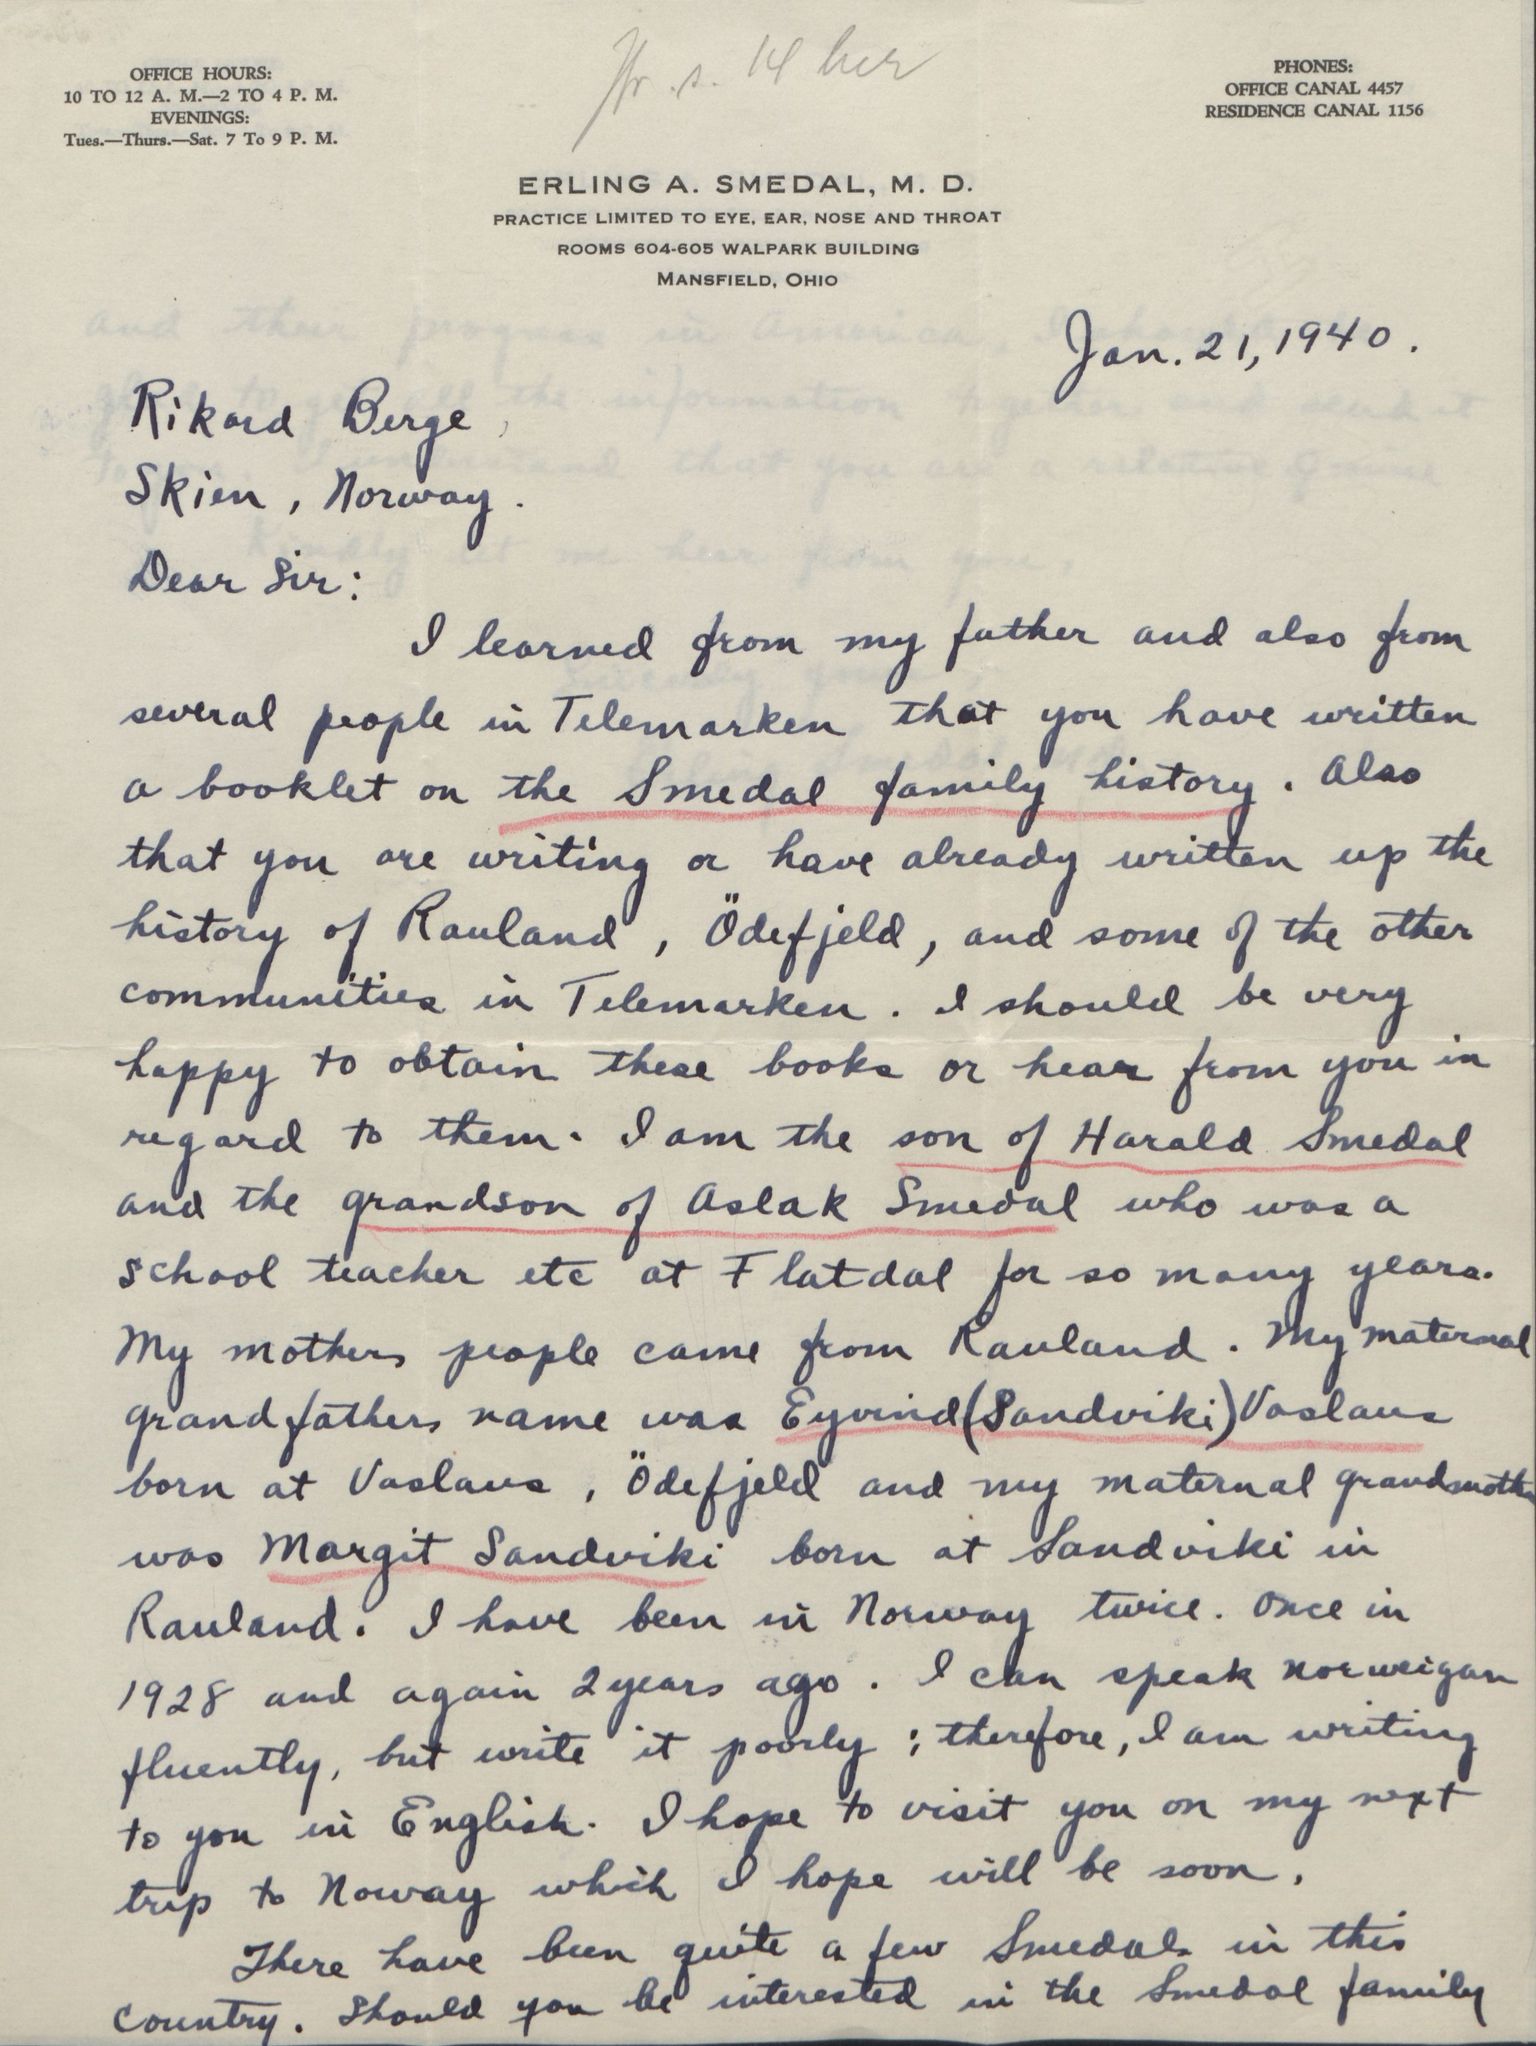 OFFICE HOURS:
10 TO 12 A. M.—2 TO 4 P. M.
EVENINGS:
Tues.—Thurs.—Sat. 7 To 9 P. M.
PHONES:
OFFICE CANAL 4457
RESIDENCE CANAL 1156
ERLING A. SMEDAL, M. D.
PRACTICE LIMITED TO EYE, EAR, NOSE AND THROAT
ROOMS 604-605 WALPARK BUILDING
MANSFIELD, OHIO
Jan. 21, 1940.
Rikard Berge,
Skien, Norway.
Dear Sir:
I learned from my father and also from
several people in Telemarken that you have written
a booklet on the Smedal family history. Also
that you are writing or have already written up the
history of Rauland, Ödefjeld, and some of the other
communities in Telemarken. I should be very
happy to obtain these books or hear from you in
regard to them. I am the son of Harald Smedal
and the grandson of Aslak Smedal who was a
school teacher etc at Flatdal for so many years.
My mothers people came from Rauland. My maternal
grandfathers name was Eyvind (Sandviki) Vaslaus
born at Vaslaus, Ödefjeld and my maternal grandmother
was Margit Sandviki born at Sandviki in
Rauland. I have been in Norway twice. Once in
1928 and again 2 years ago. I can speak norweigan
fluently, but write it poorly; therefore, I am writing
to you in English. I hope to visit you on my next
trip to Noway which I hope will be soon.
There have been quite a few Smedals in this
country. Should you be interested in the Smedal family